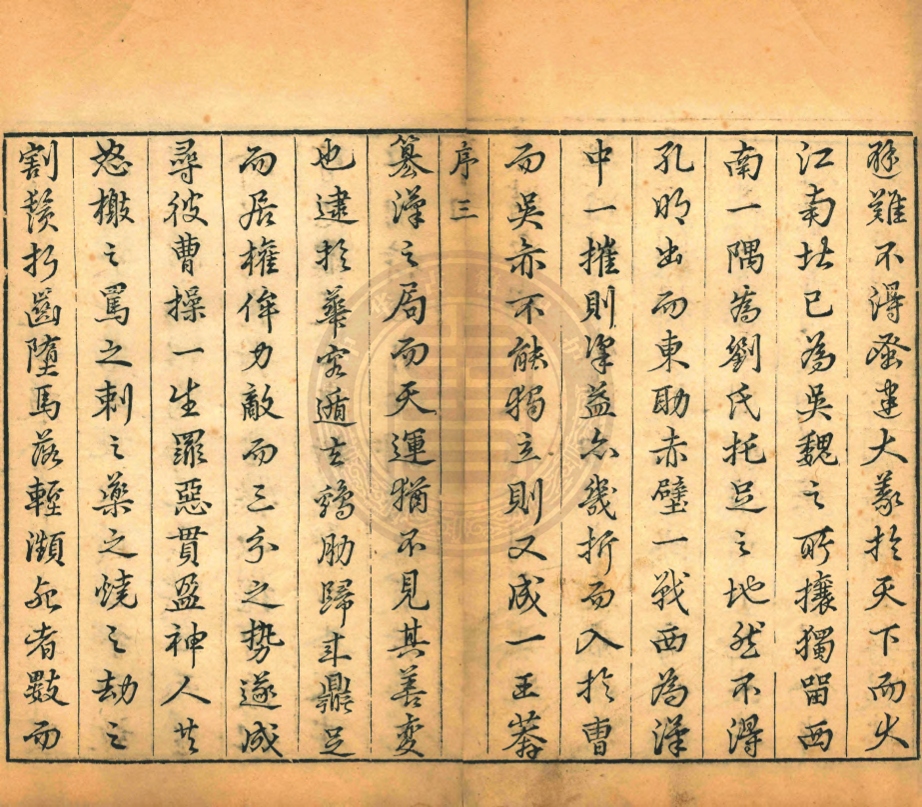 避難不得蚤建大義扵天下而大
江南北已為吳魏之所攘獨留西
南一隅為劉氏托足之地然不得
孔明出而東助赤壁一戰西為漢
中一摧則梁益亦幾折而入扵曹
而吳亦不能獨立則又成一王莽
序 三
篡漢之局而天運猶不見其善変
也逮扵華容遁去鷄肋歸來鼎足
而居權侔力敵而三分之勢遂成
尋彼曹操一生罪惡貫盈神人共
怒檄之罵之刺之藥之燒之劫之
割鬚折齒墮馬落塹瀕死者數而